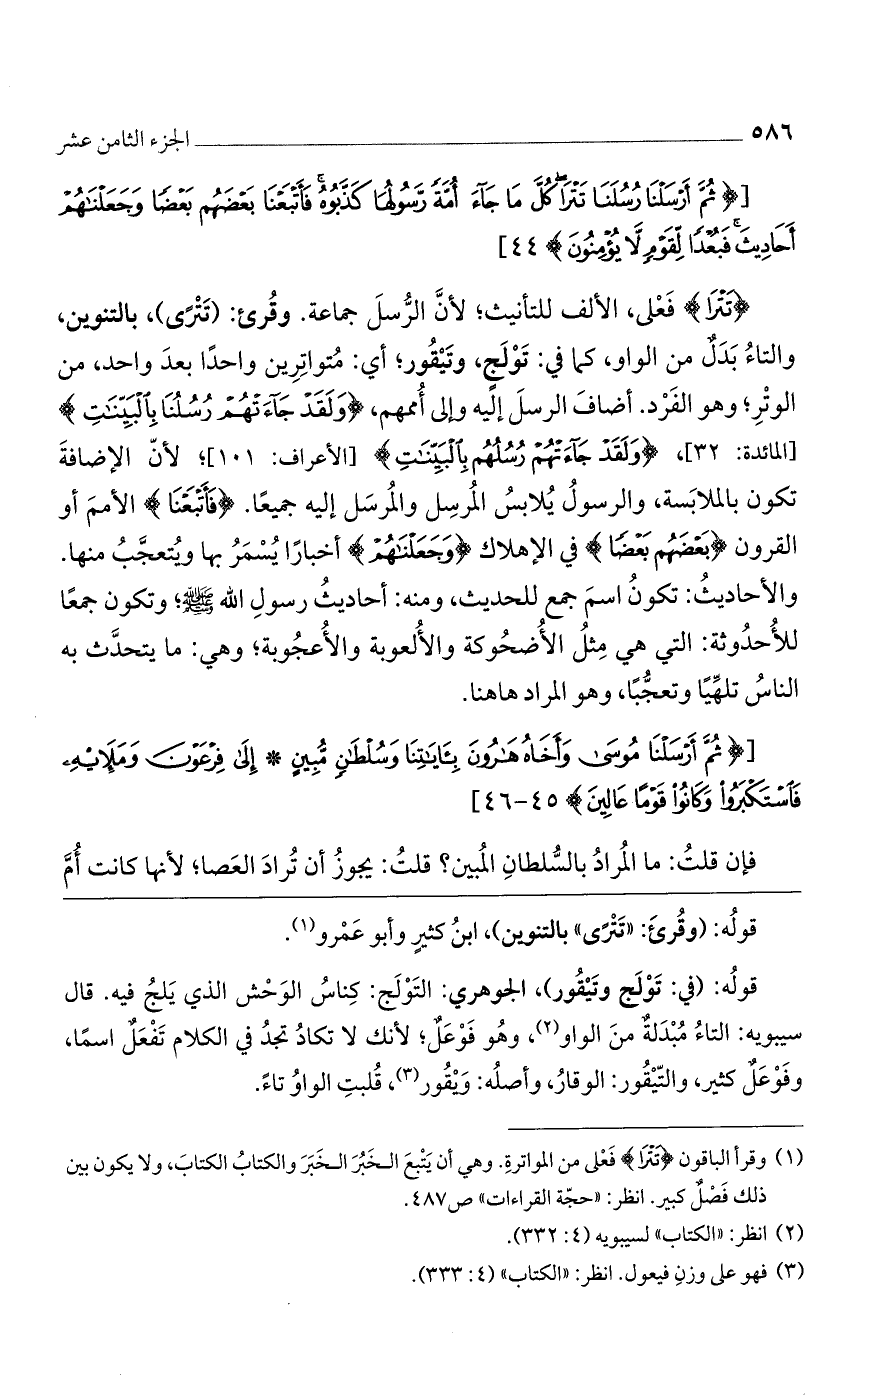 ٥٨٦ الجزء الثامن عشر
[﴿ثُمَّ أَرْسَلْنَا رُسُلَنَا تَتْرَا كُلَّ مَا جَاءَ أُمَّةً رَّسُولُهَا كَذَّبُوهُ فَأَتْبَعْنَا بَعْضَهُم بَعْضًا وَجَعَلْنَاهُمْ
أَحَادِيثَ فَبُعْدًا لِّقَوْمٍ لَّا يُؤْمِنُونَ﴾ ٤٤]
﴿تَتْرَا﴾ فَعْلى، الألف للتأنيث؛ لأنَّ الرُّسلَ جماعة. وقُرئ: (تَتْرًى)، بالتنوين،
والتاءُ بَدَلٌ من الواو، كما في: تَوْلَجٍ، وتَيْقُور؛ أي: مُتواتِرِين واحدًا بعدَ واحد، من
الوتْرِ؛ وهو الفَرْد. أضافَ الرسلَ إليه وإلى أُممهم، ﴿وَلَقَدْ جَاءَتْهُمْ رُسُلُنَا بِالْبَيِّنَاتِ﴾
[المائدة: ٣٢]، ﴿وَلَقَدْ جَاءَتْهُمْ رُسُلُهُم بِالْبَيِّنَاتِ﴾ [الأعراف: ١٠١]؛ لأنّ الإضافةَ
تكون بالملابَسة، والرسولُ يُلابسُ المُرسِل والمُرسَل إليه جميعًا. ﴿فَأَتْبَعْنَا﴾ الأممَ أو
القرون ﴿بَعْضَهُم بَعْضًا﴾ في الإهلاك ﴿وَجَعَلْنَاهُمْ﴾ أخبارًا يُسْمَرُ بها ويُتعجَّبُ منها.
والأحاديثُ: تكونُ اسمَ جمع للحديث، ومنه: أحاديثُ رسولِ الله ﷺ؛ وتكون جمعًا
للأُحدُوثة: التي هي مِثلُ الأُضحُوكة والأُلعوبة والأُعجُوبة؛ وهي: ما يتحدَّث به
الناسُ تلهِّيًا وتعجُّبًا، وهو المراد هاهنا.
[﴿ثُمَّ أَرْسَلْنَا مُوسَى وَأَخَاهُ هَارُونَ بِآيَاتِنَا وَسُلْطَانٍ مُّبِينٍ * إِلَى فِرْعَوْنَ وَمَلَإِيْهِ
فَاسْتَكْبَرُوا وَكَانُوا قَوْمًا عَالِينَ﴾ ٤٥-٤٦]
فإن قلتُ: ما المُرادُ بالسُّلطانِ المُبين؟ قلتُ: يجوزُ أن تُرادَ العَصا؛ لأنها كانت أُمَّ
قولُه: (وقُرئَ: «تَتْرًى» بالتنوين)، ابنُ كثيرٍ وأبو عَمْرو(١).
قولُه: (في: تَوْلَج وتَيْقُور)، الجوهري: التَوْلَج: كِناسُ الوَحْش الذي يَلجُ فيه. قال
سيبويه: التاءُ مُبْدَلةٌ منَ الواو(٢)، وهُو فَوْعَلٌ؛ لأنك لا تكادُ تجدُ في الكلام تَفْعَلٌ اسمًا،
وفَوْعَلٌ كثير، والتّيْقُور: الوقارُ، وأصلُه: وَيْقُور(٣)، قُلبتِ الواوُ تاءً.
(١) وقرأ الباقون ﴿تَتْرَا﴾ فَعْلى من المواترةِ. وهي أن يَتْبعَ الـخَبُرَ الـخَبَرَ والكتابُ الكتابَ، ولا يكون بين
ذلك فَصْلٌ كبير. انظر: «حجّة القراءات» ص٤٨٧.
(٢) انظر: «الكتاب» لسيبويه (٤: ٣٣٢).
(٣) فهو على وزنِ فيعول. انظر: «الكتاب» (٤: ٣٣٣).